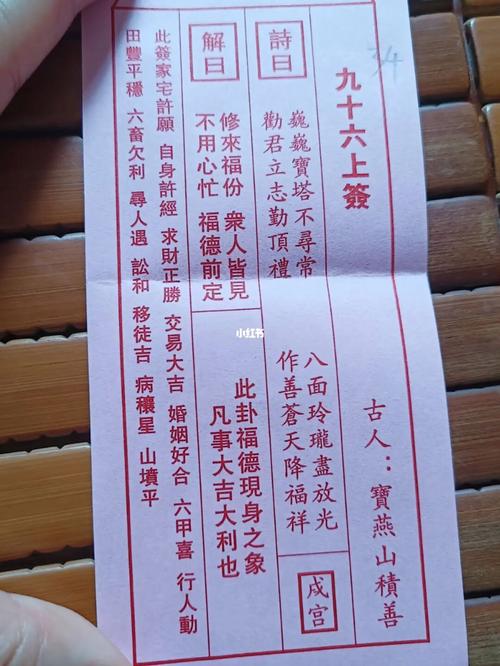 九十六上簽
古人：寶燕山積善
詩曰
巍巍寶塔不尋常 八面玲瓏盡放光
勸君立志勤頂禮 作善蒼天降福祥
戌宮
解曰
修來福份 衆人皆見
不用心忙 福德前定
此卦福德現身之象
凡事大吉大利也
此簽家宅許願 自身許經 求財正勝 交易大吉 婚姻好合 六甲喜 行人動
田豐平穩 六畜欠利 尋人遇 訟和 移徒吉 病穰星 山墳平
小红书